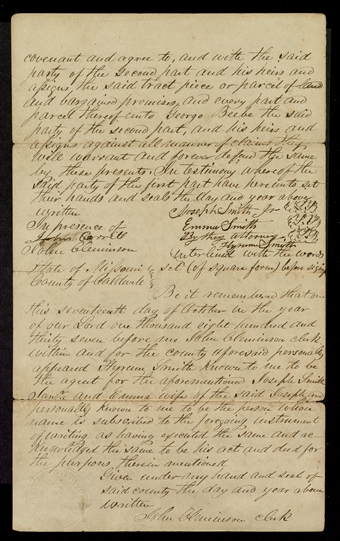 covenant and agree to, and with the said
party of the second part and his heirs and
assigns, the said tract piece or parcel of land
and bargained premises, and every part and
parcel thereof unto George Beebe the said
party of the second part, and his heirs and
assigns against all manner of claims they
will warrant and forever defend the same
by these presents. In testimony whereof the
said party of the first part have hereunto set
their hands and seals the day and year above
written
Joseph Smith Jr
In presence of
Emma Smith
By their attorney
John Cleminson
Hyrum Smith
Interlined with the words
State of Missouri
set (of square form) before signing
County of Caldwell
Be it remembered that on
this seventeenth day of October in the year
of our Lord one thousand eight hundred and
thirty seven before me John Cleminson clerk
within and for the county aforesaid personally
appeared Hyrum Smith known to me to be
the agent for the aforementioned Joseph Smith
and Emma wife of the said Joseph, and
personally known to me to be the person whose
name is subscribed to the foregoing instrument
of writing as having executed the same and ac
knowledged the same to be his act and deed for
the purposes therein mentioned
Given under my hand and seal of
said county the day and year above
written
John Cleminson clerk